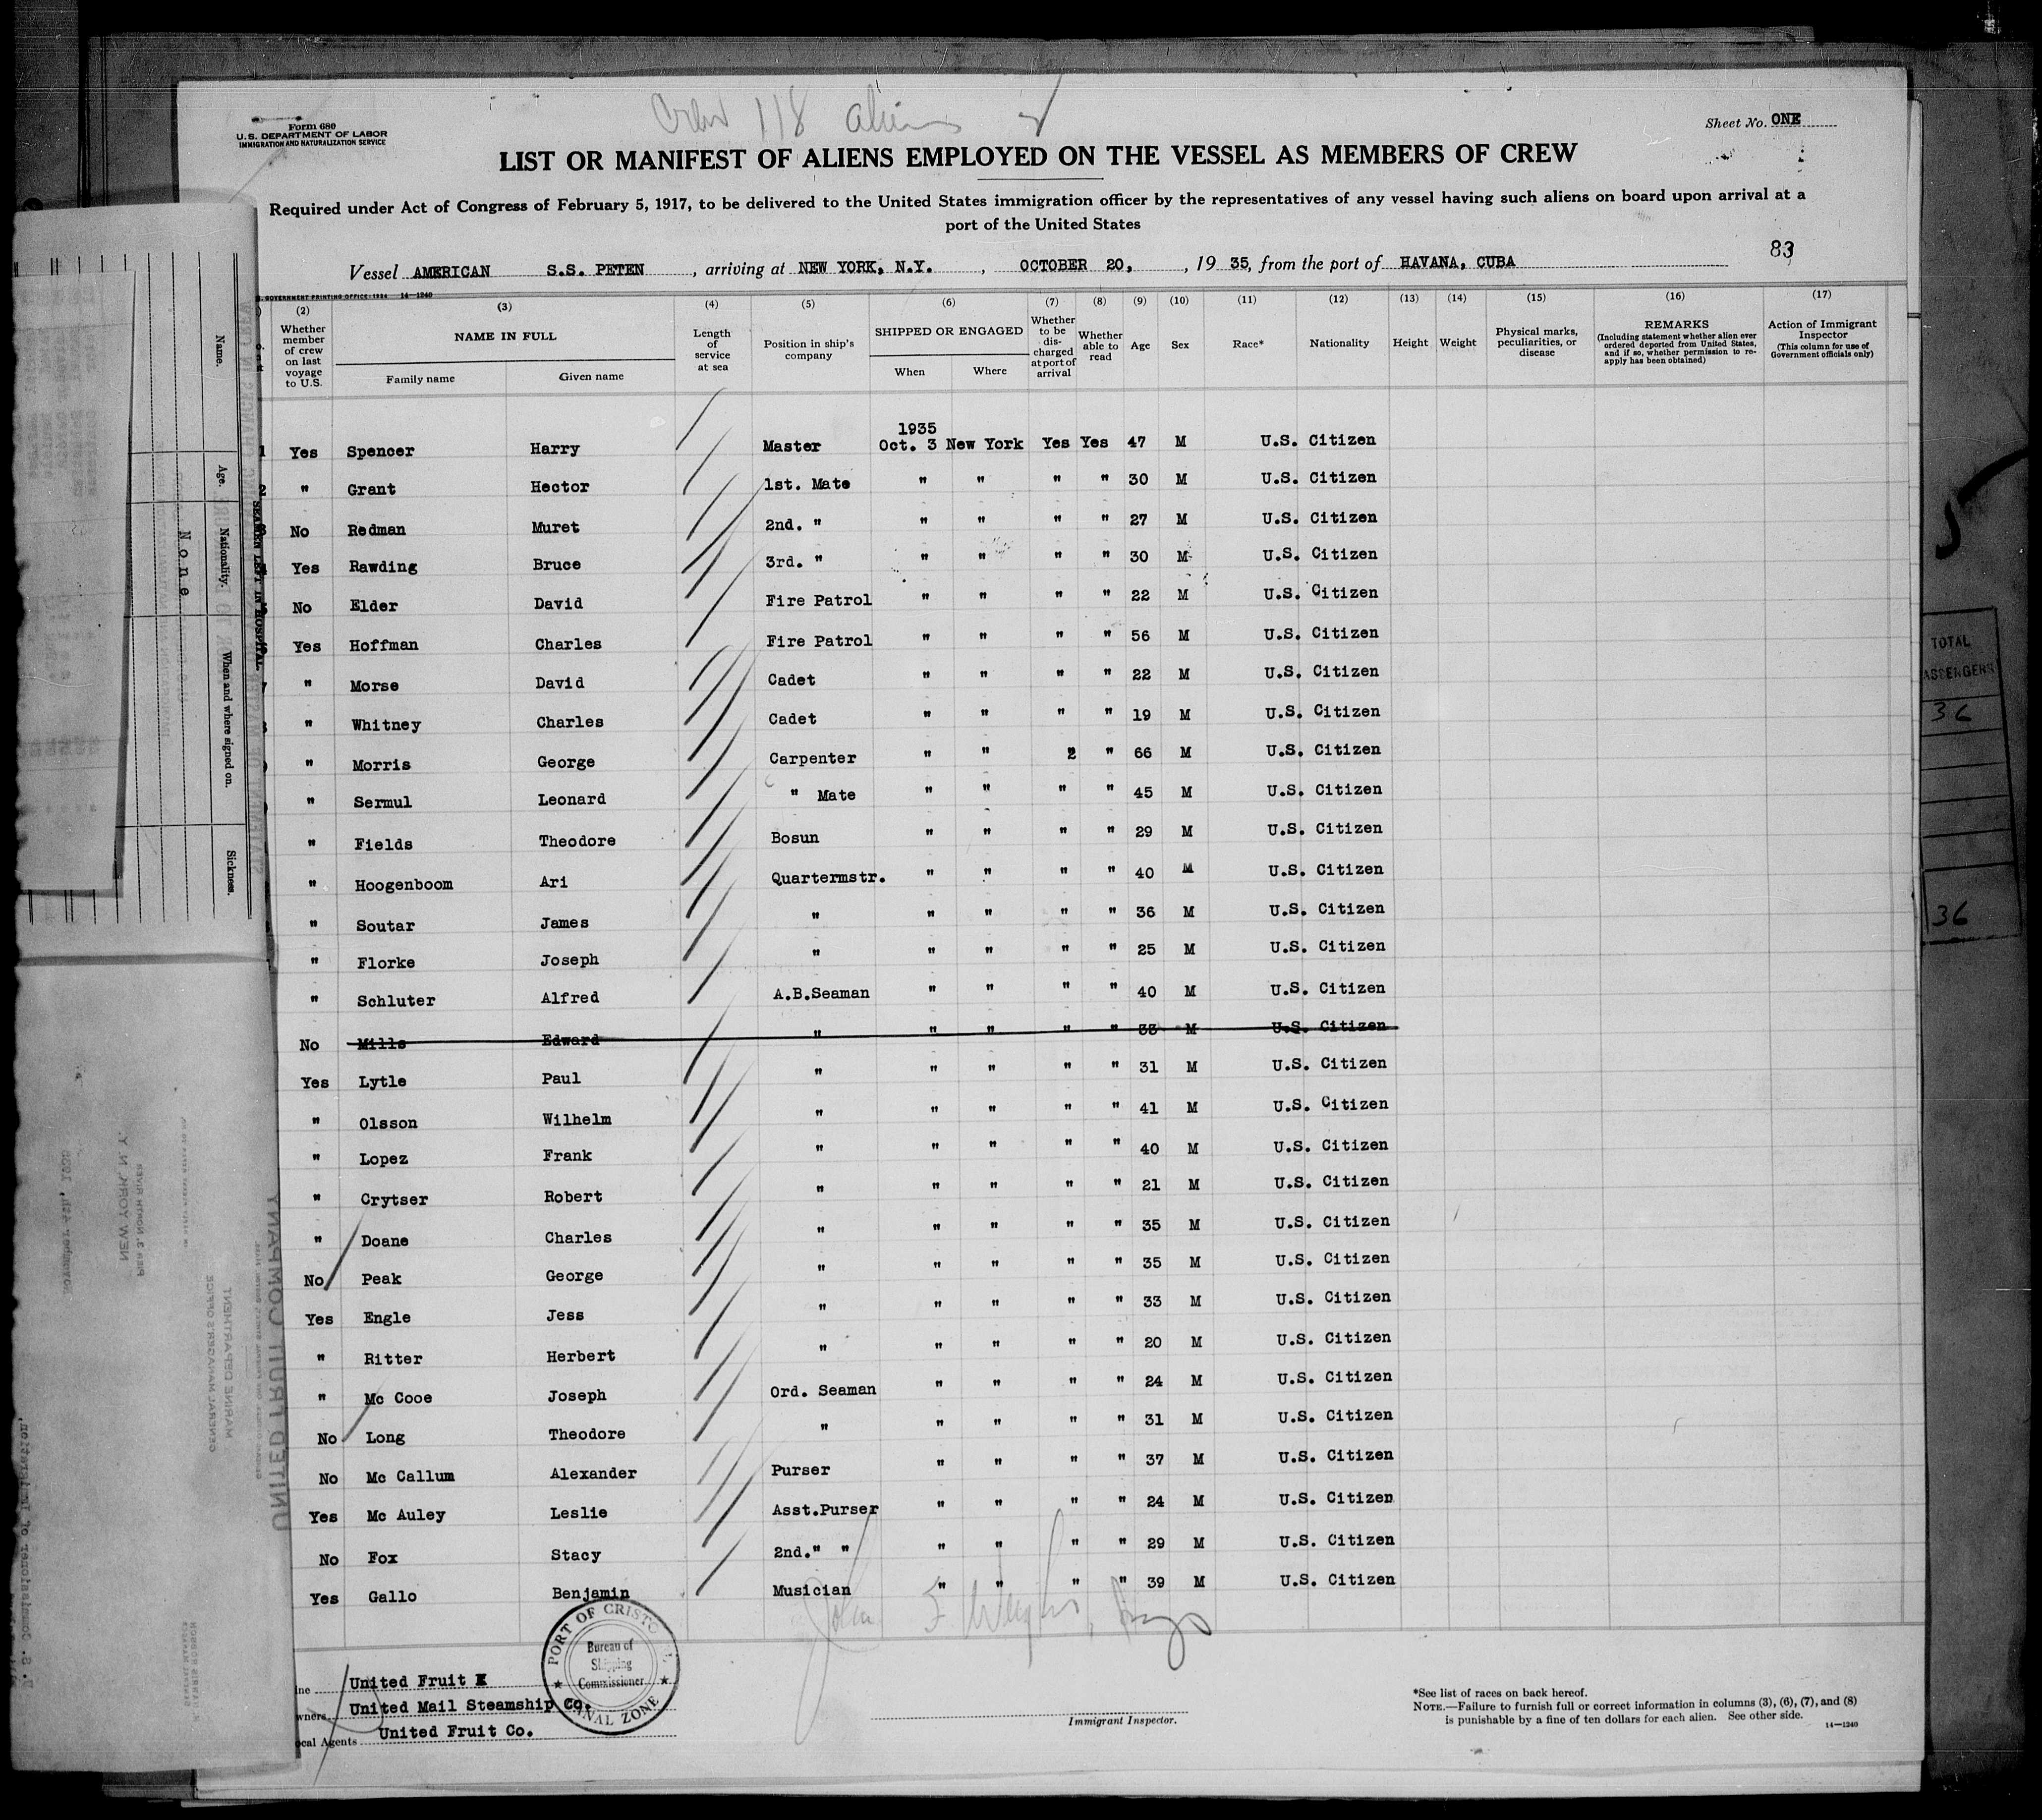 Crew 118 aliens
Form 680
U.S. DEPARTMENT OF LABOR
IMMIGRATION AND NATURALIZATION SERVICE
Sheet No. ONE
LIST OR MANIFEST OF ALIENS EMPLOYED ON THE VESSEL AS MEMBERS OF CREW
Required under Act of Congress of February 5, 1917, to be delivered to the United States immigration officer by the representatives of any vessel having such aliens on board upon arrival at a
port of the United States
83
Vessel AMERICAN S.S. PETEN, arriving at NEW YORK, N.Y., OCTOBER 20, , 19 35, from the port of HAVANA, CUBA
GOVERNMENT PRINTING OFFICE: 1934 14—1240
(2) (3) (4) (5) (6) (7) (8) (9) (10) (11) (12) (13) (14) (15) (16) (17)
Whether member of crew on last voyage to U.S. NAME IN FULL Family name Given name Length of service at sea Position in ship's company SHIPPED OR ENGAGED When Where Whether to be discharged at port of arrival Whether able to read Age Sex Race* Nationality Height Weight Physical marks, peculiarities, or disease REMARKS (Including statement whether alien ever ordered deported from United States, and if so, whether permission to reapply has been obtained) Action of Immigrant Inspector (This column for use of Government officials only)
1935
1 Yes Spencer Harry Master Oct. 3 New York Yes Yes 47 M U.S. Citizen
2 " Grant Hector 1st. Mate " " " " 30 M U.S. Citizen
3 No Redman Muret 2nd. " " " " " 27 M U.S. Citizen
4 Yes Rawding Bruce 3rd. " " " " " 30 M U.S. Citizen
5 No Elder David Fire Patrol " " " " 22 M U.S. Citizen
6 Yes Hoffman Charles Fire Patrol " " " " 56 M U.S. Citizen
7 " Morse David Cadet " " " " 22 M U.S. Citizen
" Whitney Charles Cadet " " " " 19 M U.S. Citizen
" Morris George Carpenter " " 2 " 66 M U.S. Citizen
" Sermul Leonard " Mate " " " " 45 M U.S. Citizen
" Fields Theodore Bosun " " " " 29 M U.S. Citizen
" Hoogenboom Ari Quartermstr. " " " " 40 M U.S. Citizen
" Soutar James " " " " " 36 M U.S. Citizen
" Florke Joseph " " " " " 25 M U.S. Citizen
" Schluter Alfred A.B.Seaman " " " " 40 M U.S. Citizen
No Mills Edward " " " " " 33 M U.S. Citizen
Yes Lytle Paul " " " " " 31 M U.S. Citizen
" Olsson Wilhelm " " " " " 41 M U.S. Citizen
" Lopez Frank " " " " " 40 M U.S. Citizen
" Crytser Robert " " " " " 21 M U.S. Citizen
" Doane Charles " " " " " 35 M U.S. Citizen
No Peak George " " " " " 35 M U.S. Citizen
Yes Engle Jess " " " " " 33 M U.S. Citizen
" Ritter Herbert " " " " " 20 M U.S. Citizen
" Mc Cooe Joseph Ord. Seaman " " " " 24 M U.S. Citizen
No Long Theodore " " " " " 31 M U.S. Citizen
No Mc Callum Alexander Purser " " " " 37 M U.S. Citizen
Yes Mc Auley Leslie Asst.Purser " " " " 24 M U.S. Citizen
No Fox Stacy 2nd." " " " " " 29 M U.S. Citizen
Yes Gallo Benjamin Musician " " " " 39 M U.S. Citizen
John F.
PORT OF CRISTO
Bureau of
Shipping
Commissioner
CANAL ZONE
ine United Fruit
wners United Mail Steamship Co.
ocal Agents United Fruit Co.
Immigrant Inspector.
*See list of races on back hereof.
NOTE.—Failure to furnish full or correct information in columns (3), (6), (7), and (8)
is punishable by a fine of ten dollars for each alien. See other side.
14—1240
Name.
Age.
Nationality.
When and where signed on.
Sickness.
None
SEAMEN LEFT IN HOSPITAL
UNITED FRUIT COMPANY
MARINE DEPARTMENT
GENERAL MANAGER'S OFFICE
PIER 3, NORTH RIVER
NEW YORK, N. Y.
November 4th, 1935
TOTAL
PASSENGERS
36
36